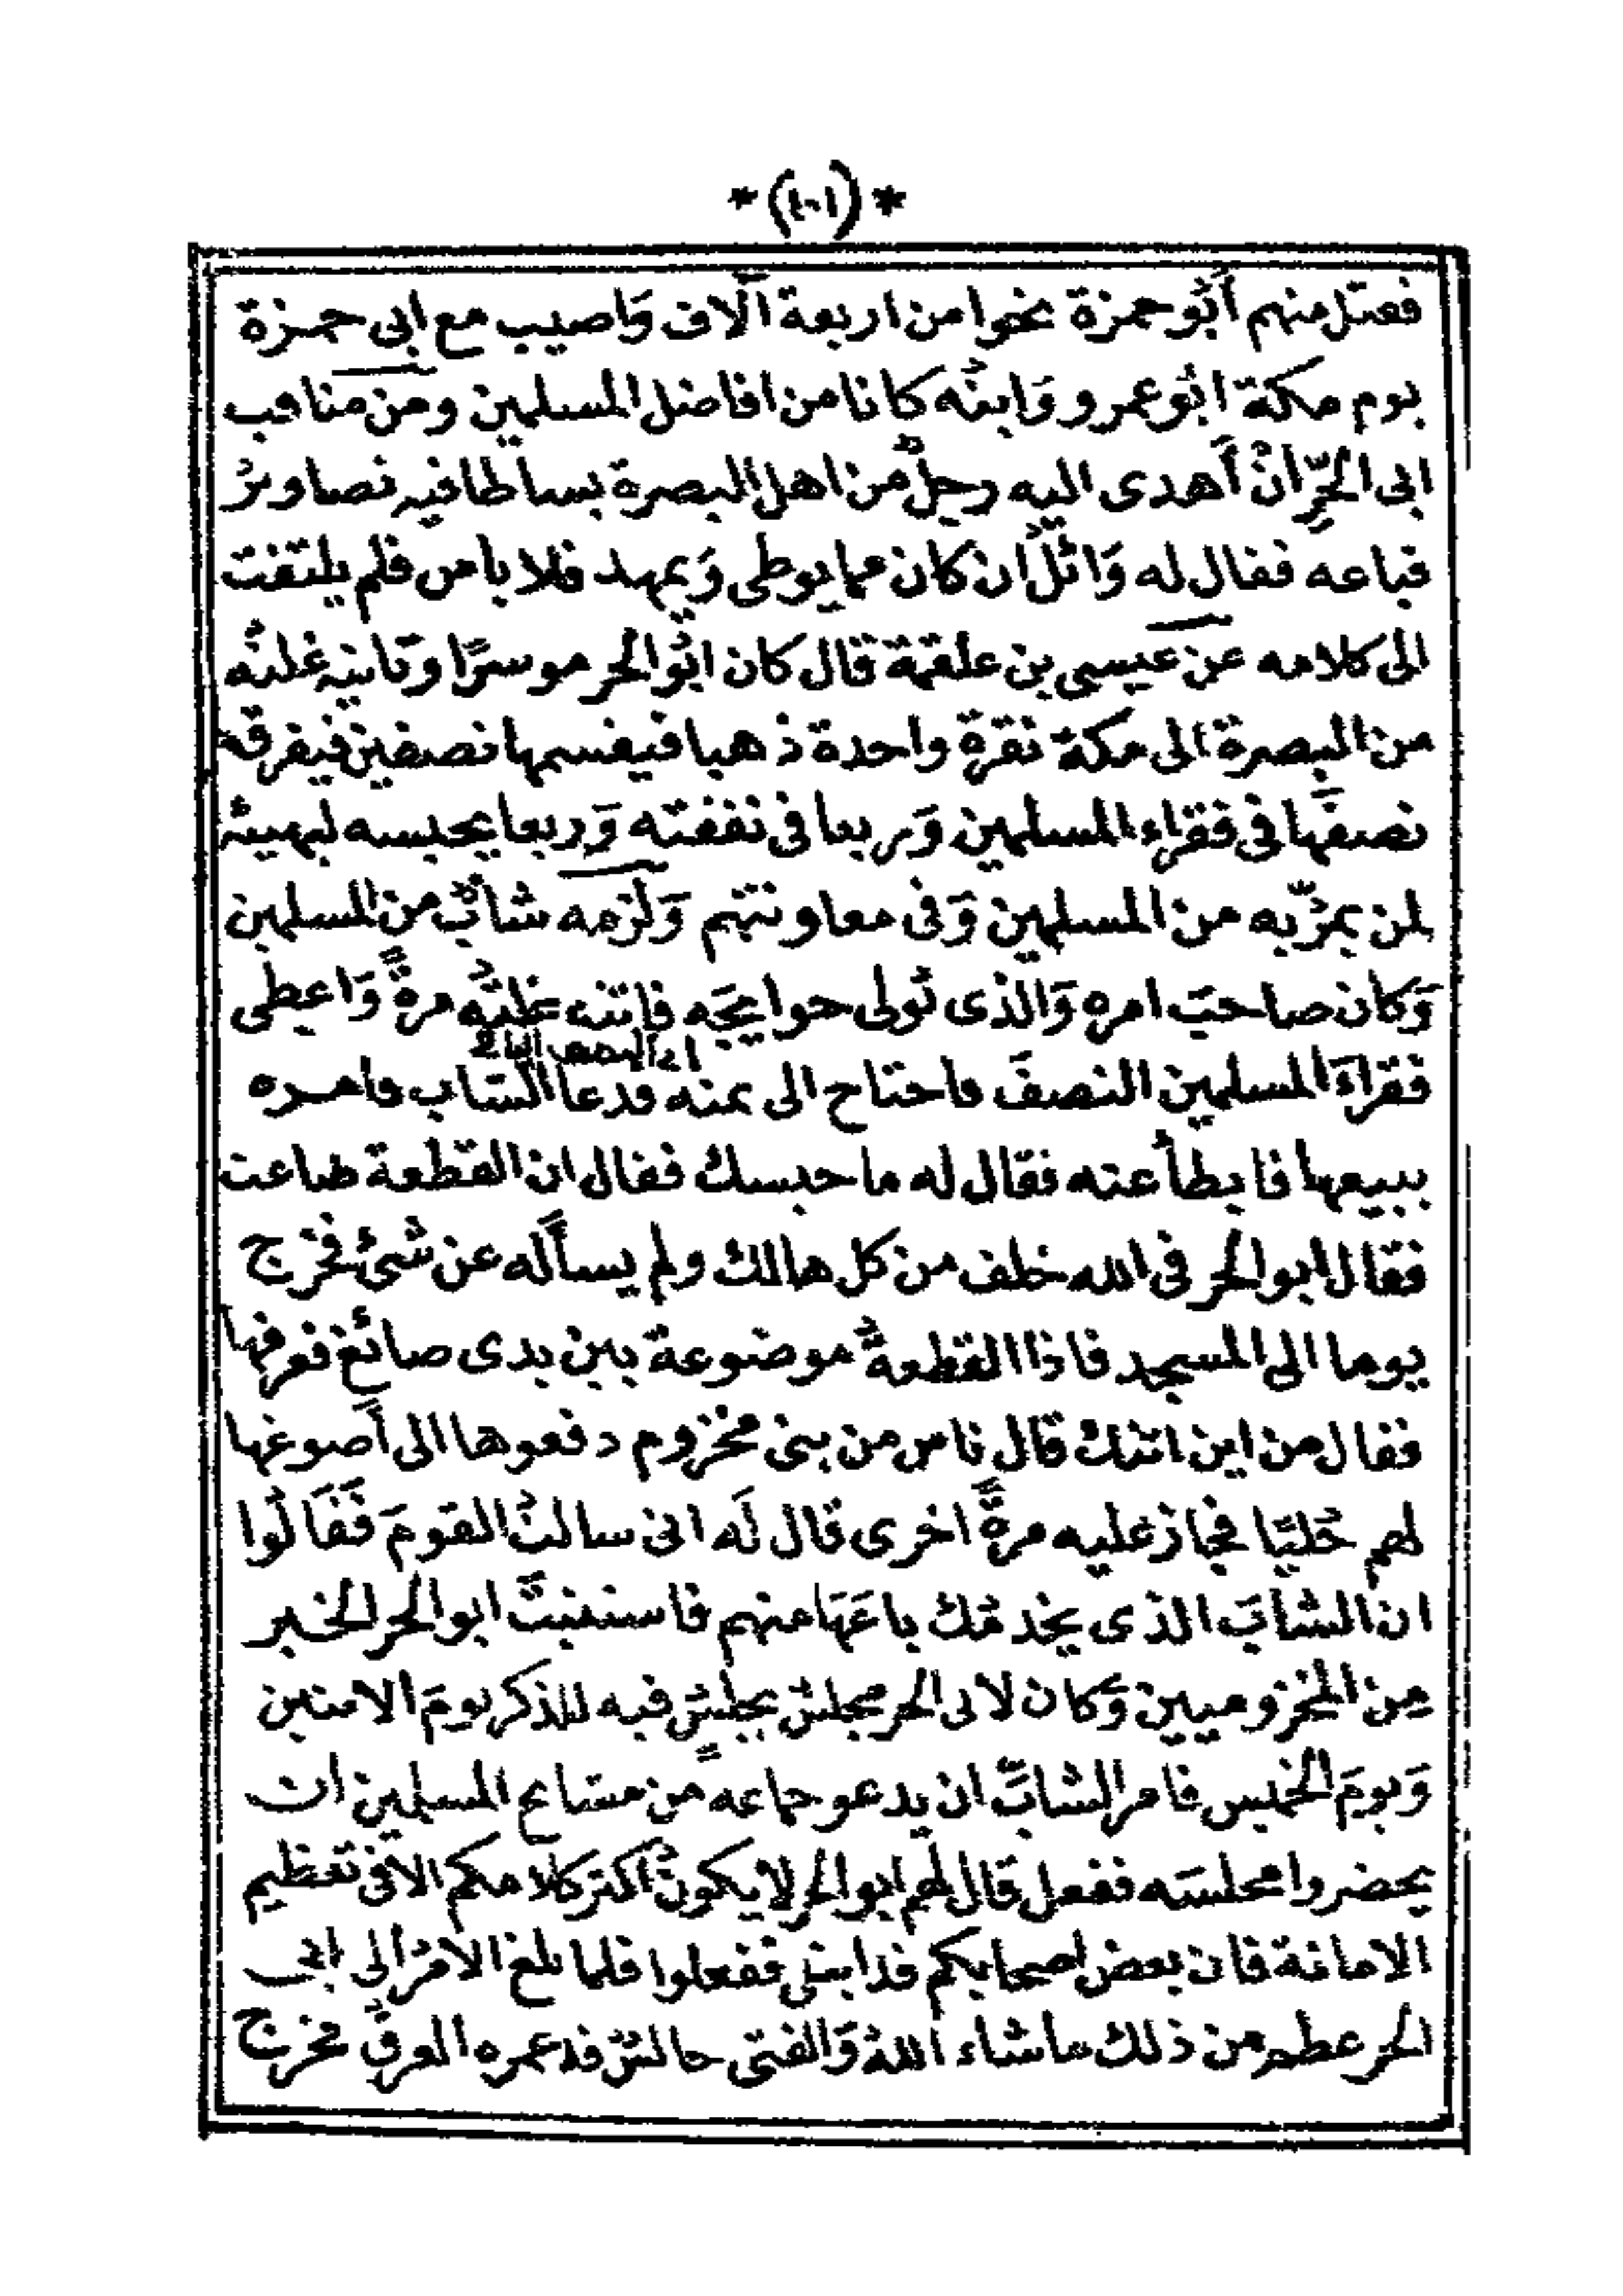 *(١٠١)*
فقتل منهم أَبُو حمزة نحوا من اربعة آلاف وَاصيب مع ابى حمزة
يوم مكة ابُو عمرو وَابنُه كانا من افاضل المسلمين ومن مناقب
ابى الحرِّ انْ أَهدى اليه رجلٌ من اهل البصرة بساطا فيه تصاويرُ
فباعه فقال له وَائلٌ ان كان مما يوطى وَيمهد فلا باس فلم يلتفت
الى كلامه عن عيسى بن علقمة قال كان ابُو الحر موسرًا وتاتيه غلتُه
من البصرة الى مكة نقرةٍ واحدة ذهبا فيقسمها نصفين فيفرقه
نصفَها فى فقراء المسلمين وَربعا فى نفقته وَربعا يحبسه ليهيئه
لمن يمرُّ به من المسلمين وَفى معاونتهم وَلزمه شابٌ من المسلمين
وَكان صاحبَ امره وَالذى تولى حوايجَه فاتته غلتُه مرةً وَاعطى
فقراءَ المسلمين النصفَ فاحتاج الى ثمنه فدعا الشاب فامره
اى النصف الباقى
ببيعها فابطأ عنه فقال له ما حبسك فقال ان القطعة ضاعت
فقال ابو الحر فى الله خلف من كل هالك ولم يسأله عن شئ فخرج
يوما الى المسجد فاذا القطعةُ موضوعة بين يدى صائغ فعرفها
فقال من اين اتتك قال ناس من بنى مخزوم دفعوها الى أصوغها
لهم حُليًا فجاز عليه مرةً اخرى قال لَه انى سالتُ القومَ فَقَالُوا
ان الشابَ الذى يخدمُك باعَهَا منهم فاستثبتَ ابو الحر الخبر
مِن المخزوميين وَكان لابى الحر مجلسٌ يجلِسُ فيه للذكر يومَ الاثنين
وَيومَ الخميس فامر الشابَّ ان يدعو جماعةً من مشايح المسلمين ان
يحضروا مجلسَه ففعل قال لهم ابو الحر لا يكونُ اكثر كلامكم الا فى تعظيم
الامانة فان بعض اصحابكم قد ابتلى ففعلوا فلما بلغ الامرُ الى ابى
الحر عظم من ذلك ما شاء اللهُ وَالفتى جالسٌ قد غمره العرقُ فخرج